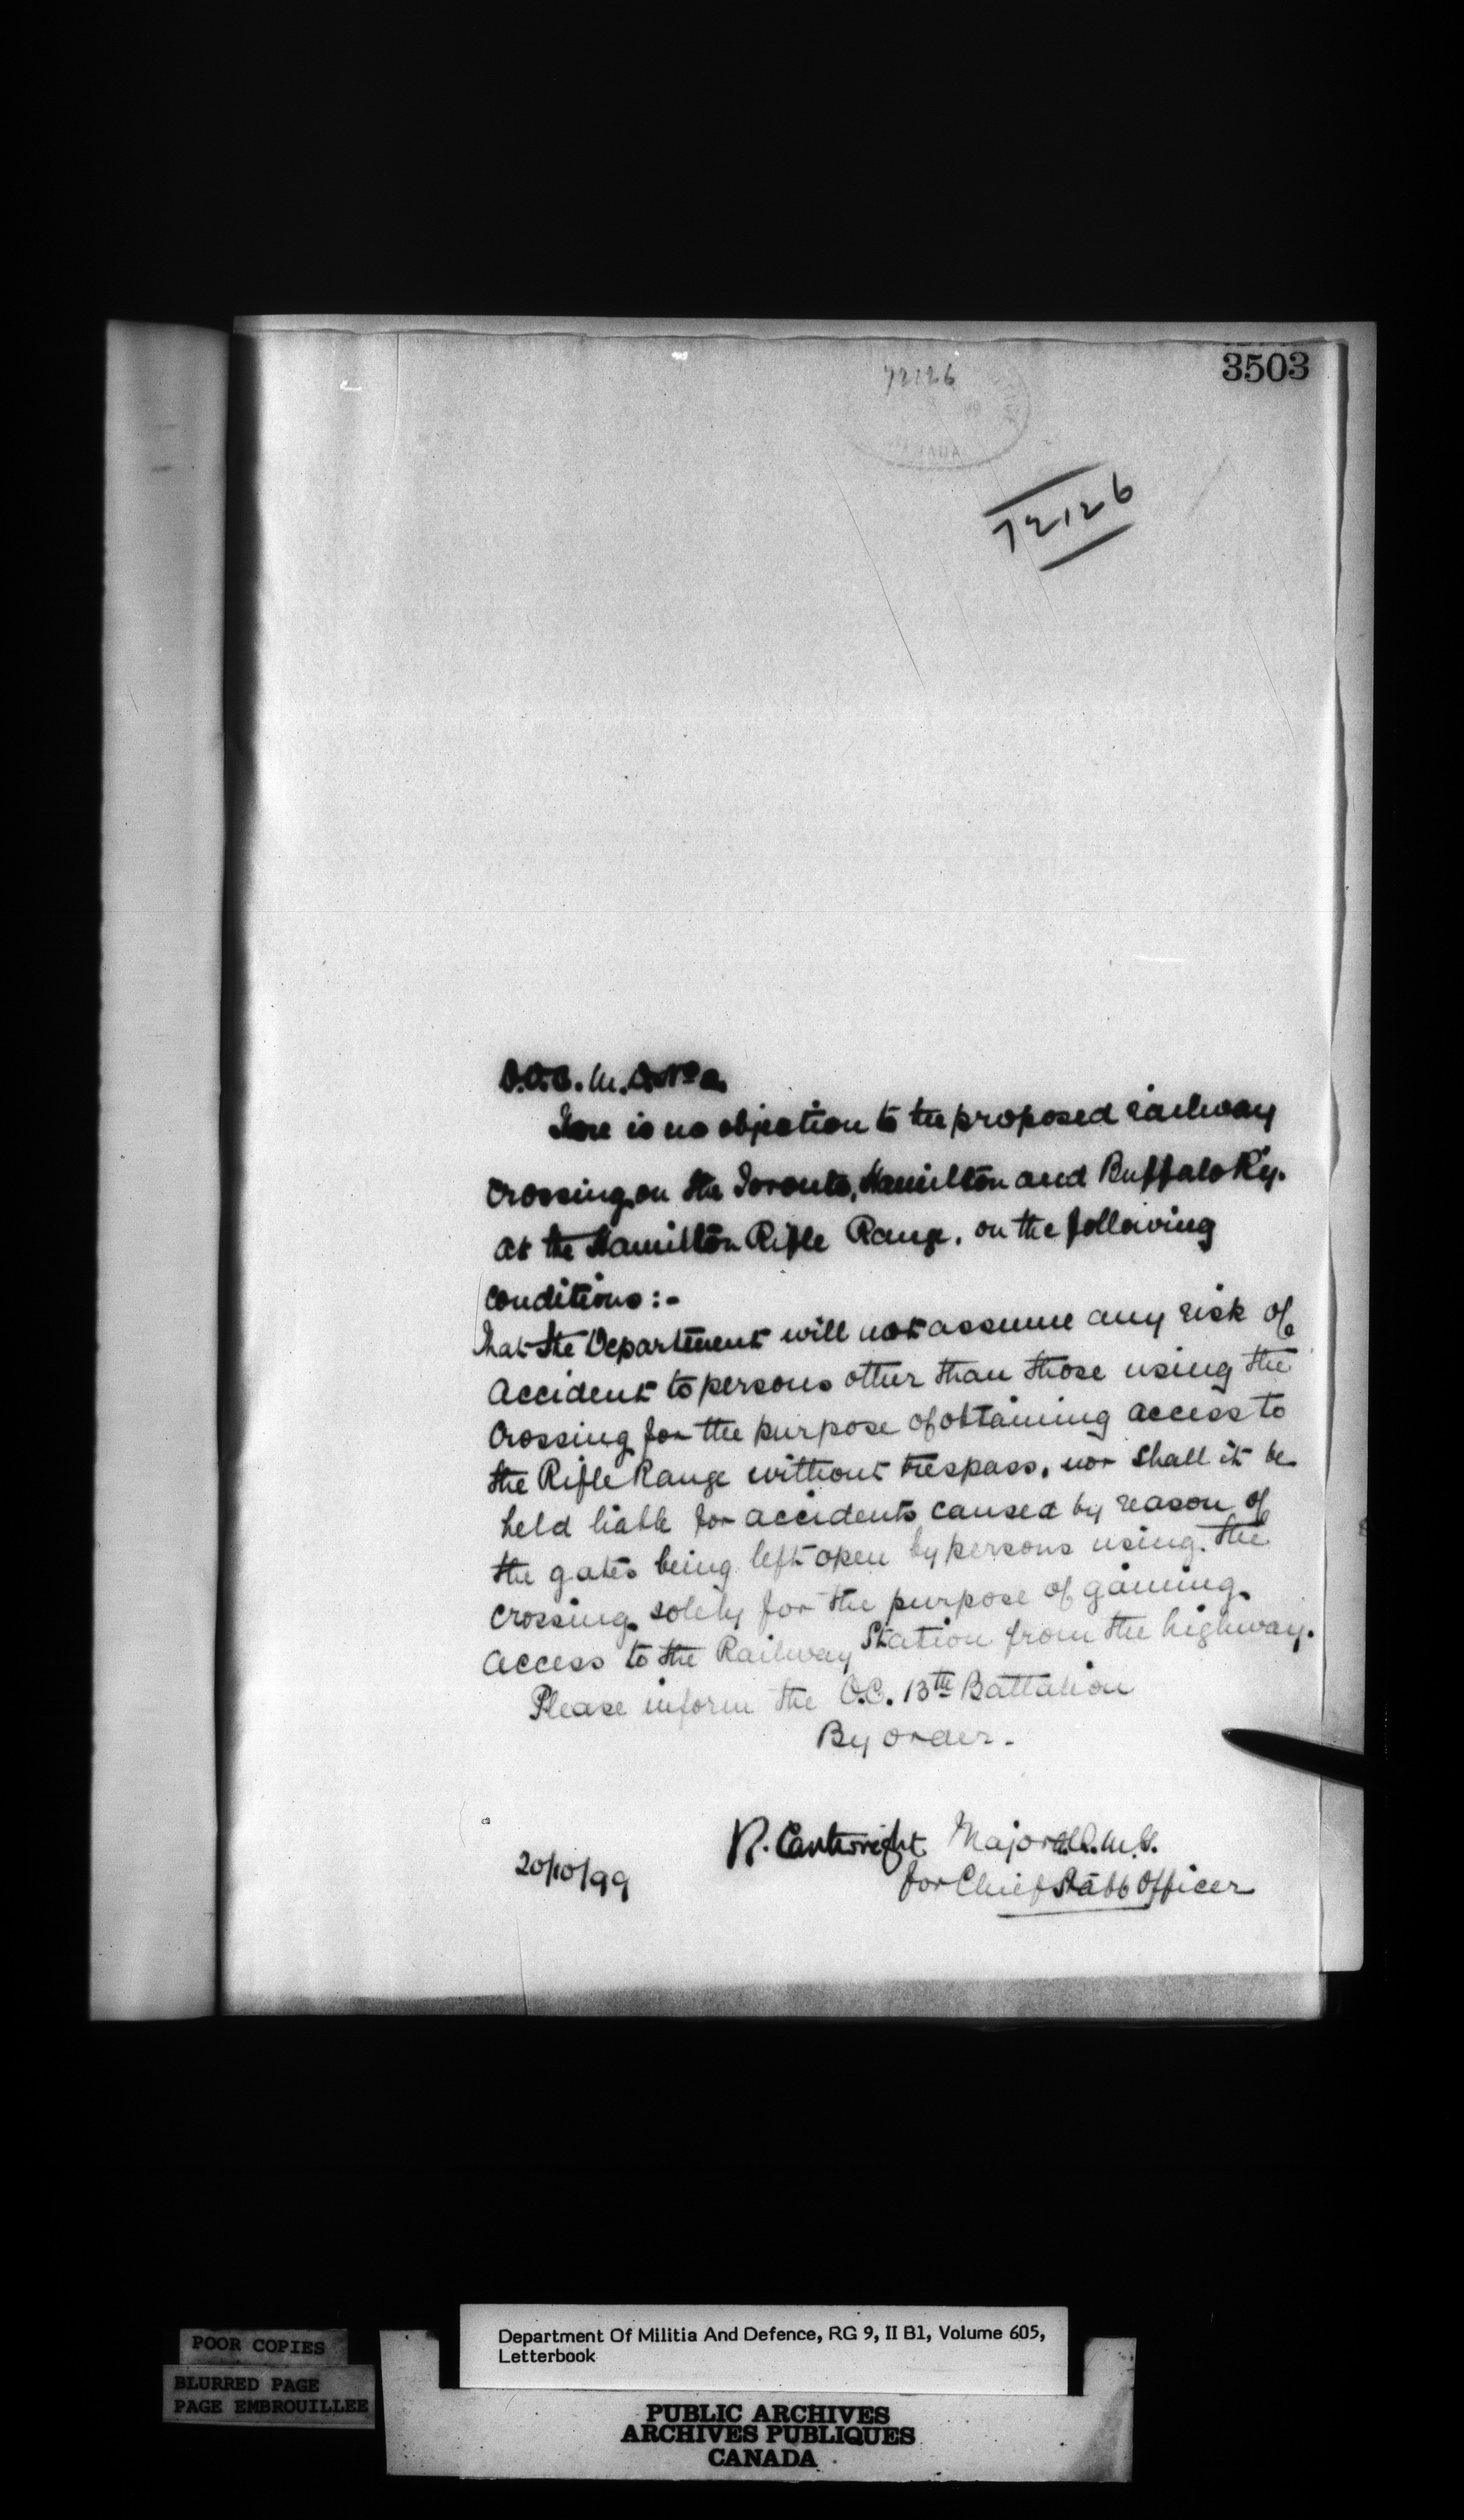 3503
72126
CANADA
72126
D.O.C. M.D. No 2.
There is no objection to the proposed railway
crossing on the Toronto, Hamilton and Buffalo Ry.
at the Hamilton Rifle Range, on the following
conditions:-
That the Department will not assume any risk of
accident to persons other than those using the
crossing for the purpose of obtaining access to
the Rifle Range without trespass, nor shall it be
held liable for accidents caused by reason of
the gates being left open by persons using the
crossing solely for the purpose of gaining
access to the Railway Station from the highway.
Please inform the O.C. 13th Battalion
By order.
R. Cartwright Major
20/10/99
for Chief Staff Officer
POOR COPIES
BLURRED PAGE
PAGE EMBROUILLEE
Department Of Militia And Defence, RG 9, II B1, Volume 605,
Letterbook
PUBLIC ARCHIVES
ARCHIVES PUBLIQUES
CANADA